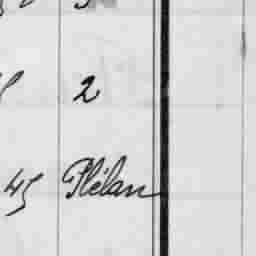 2
45 Plélan